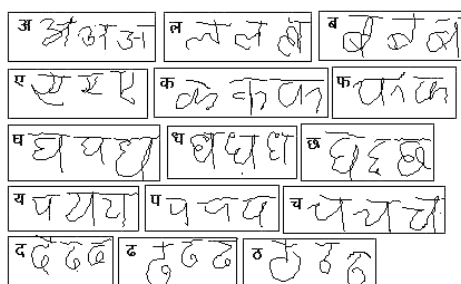 अ अ अ अ ल ल ल ल ब ब ब ब
ए ए ए ए क क क क फ फ फ
घ घ घ घ ध ध ध ध छ छ छ छ
य य य य प प प प च च च च
द द द द ढ ढ ढ ढ ठ ठ ठ ठ